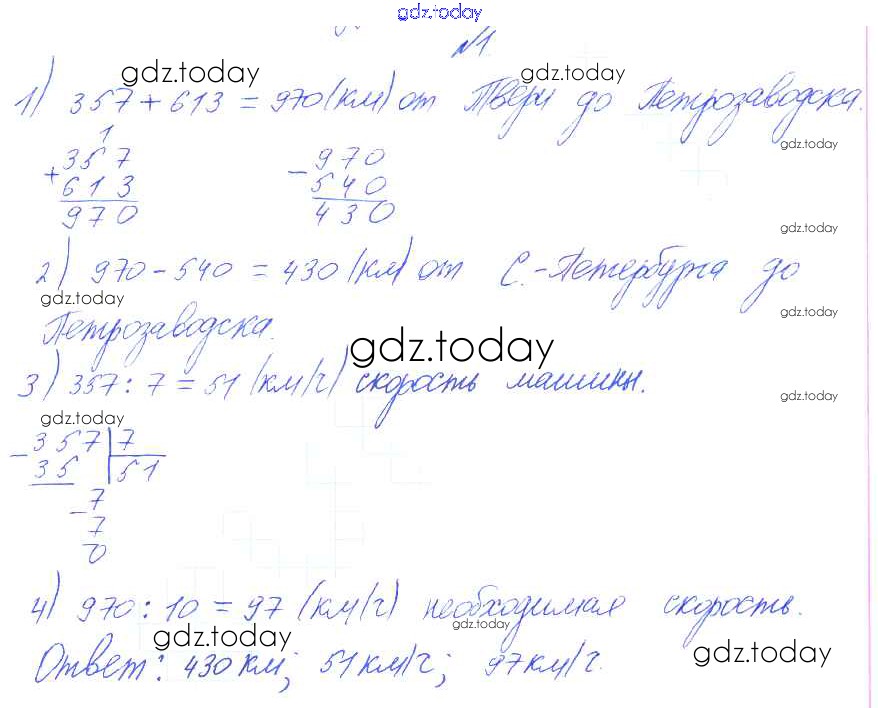 gdz.today
№1.
gdz.today gdz.today
1) 357 + 613 = 970 (км) от Твери до Петрозаводска.
gdz.today
1
+ 357
613
970
- 970
540
430
gdz.today
2) 970 - 540 = 430 (км) от С.-Петербурга до
gdz.today gdz.today
Петрозаводска.
gdz.today
3) 357 : 7 = 51 (км/ч) скорость машины.
gdz.today
gdz.today
- 357 | 7
35 | 51
- 7
7
0
4) 970 : 10 = 97 (км/ч) необходимая скорость.
gdz.today
gdz.today gdz.today
Ответ: 430 км; 51 км/ч; 97 км/ч.